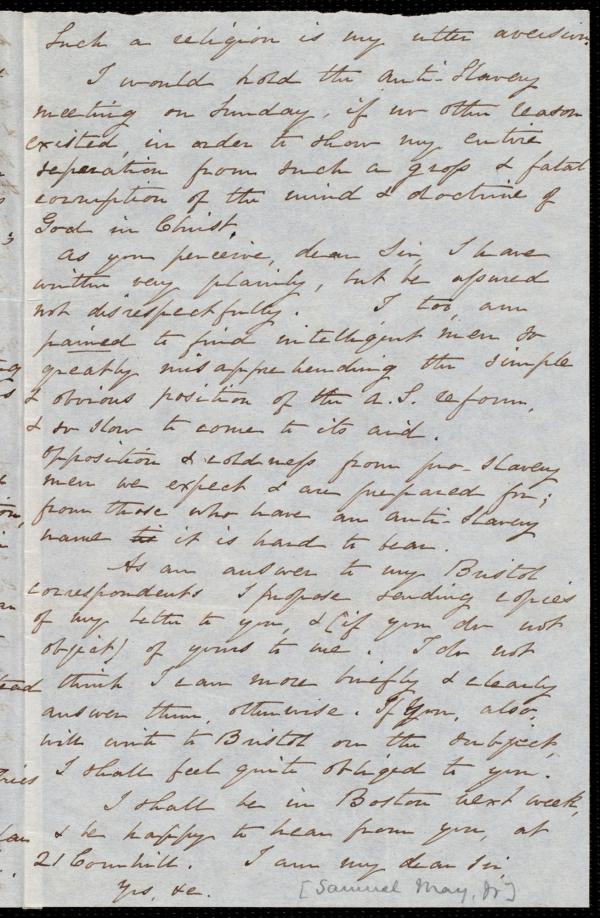 Such a religion is my utter aversion.
I would hold the Anti-Slavery
meeting on Sunday, if no other reason
existed, in order to show my entire
seperation from such a gross & fatal
corruption of the mind & doctrine of
God in Christ.
As you perceive, dear Sir, I have
written very plainly, but be assured
not disrespectfully. I too, am
pained to find intelligent men so
greatly misapprehending the simple
& obvious position of the A.S. reform,
& so slow to come to its aid.
Opposition & coldness from pro-slavery
men we expect & are prepared for;
from those who have an anti-slavery
name it is hard to bear.
As an answer to my Bristol
correspondents I propose sending copies
of my letter to you, & (if you do not
object) of yours to me. I do not
think I can more briefly & clearly
answer them, otherwise. If you, also,
will write to Bristol on the subject,
I shall feel quite obliged to you.
I shall be in Boston next week,
& be happy to hear from you, at
21 Cornhill. I am my dear Sir,
Yrs, &c. [Samuel May, Jr]